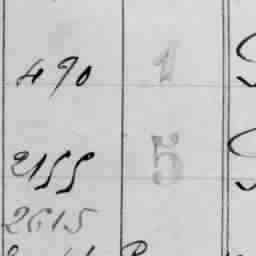 490 1
2155 5
2615